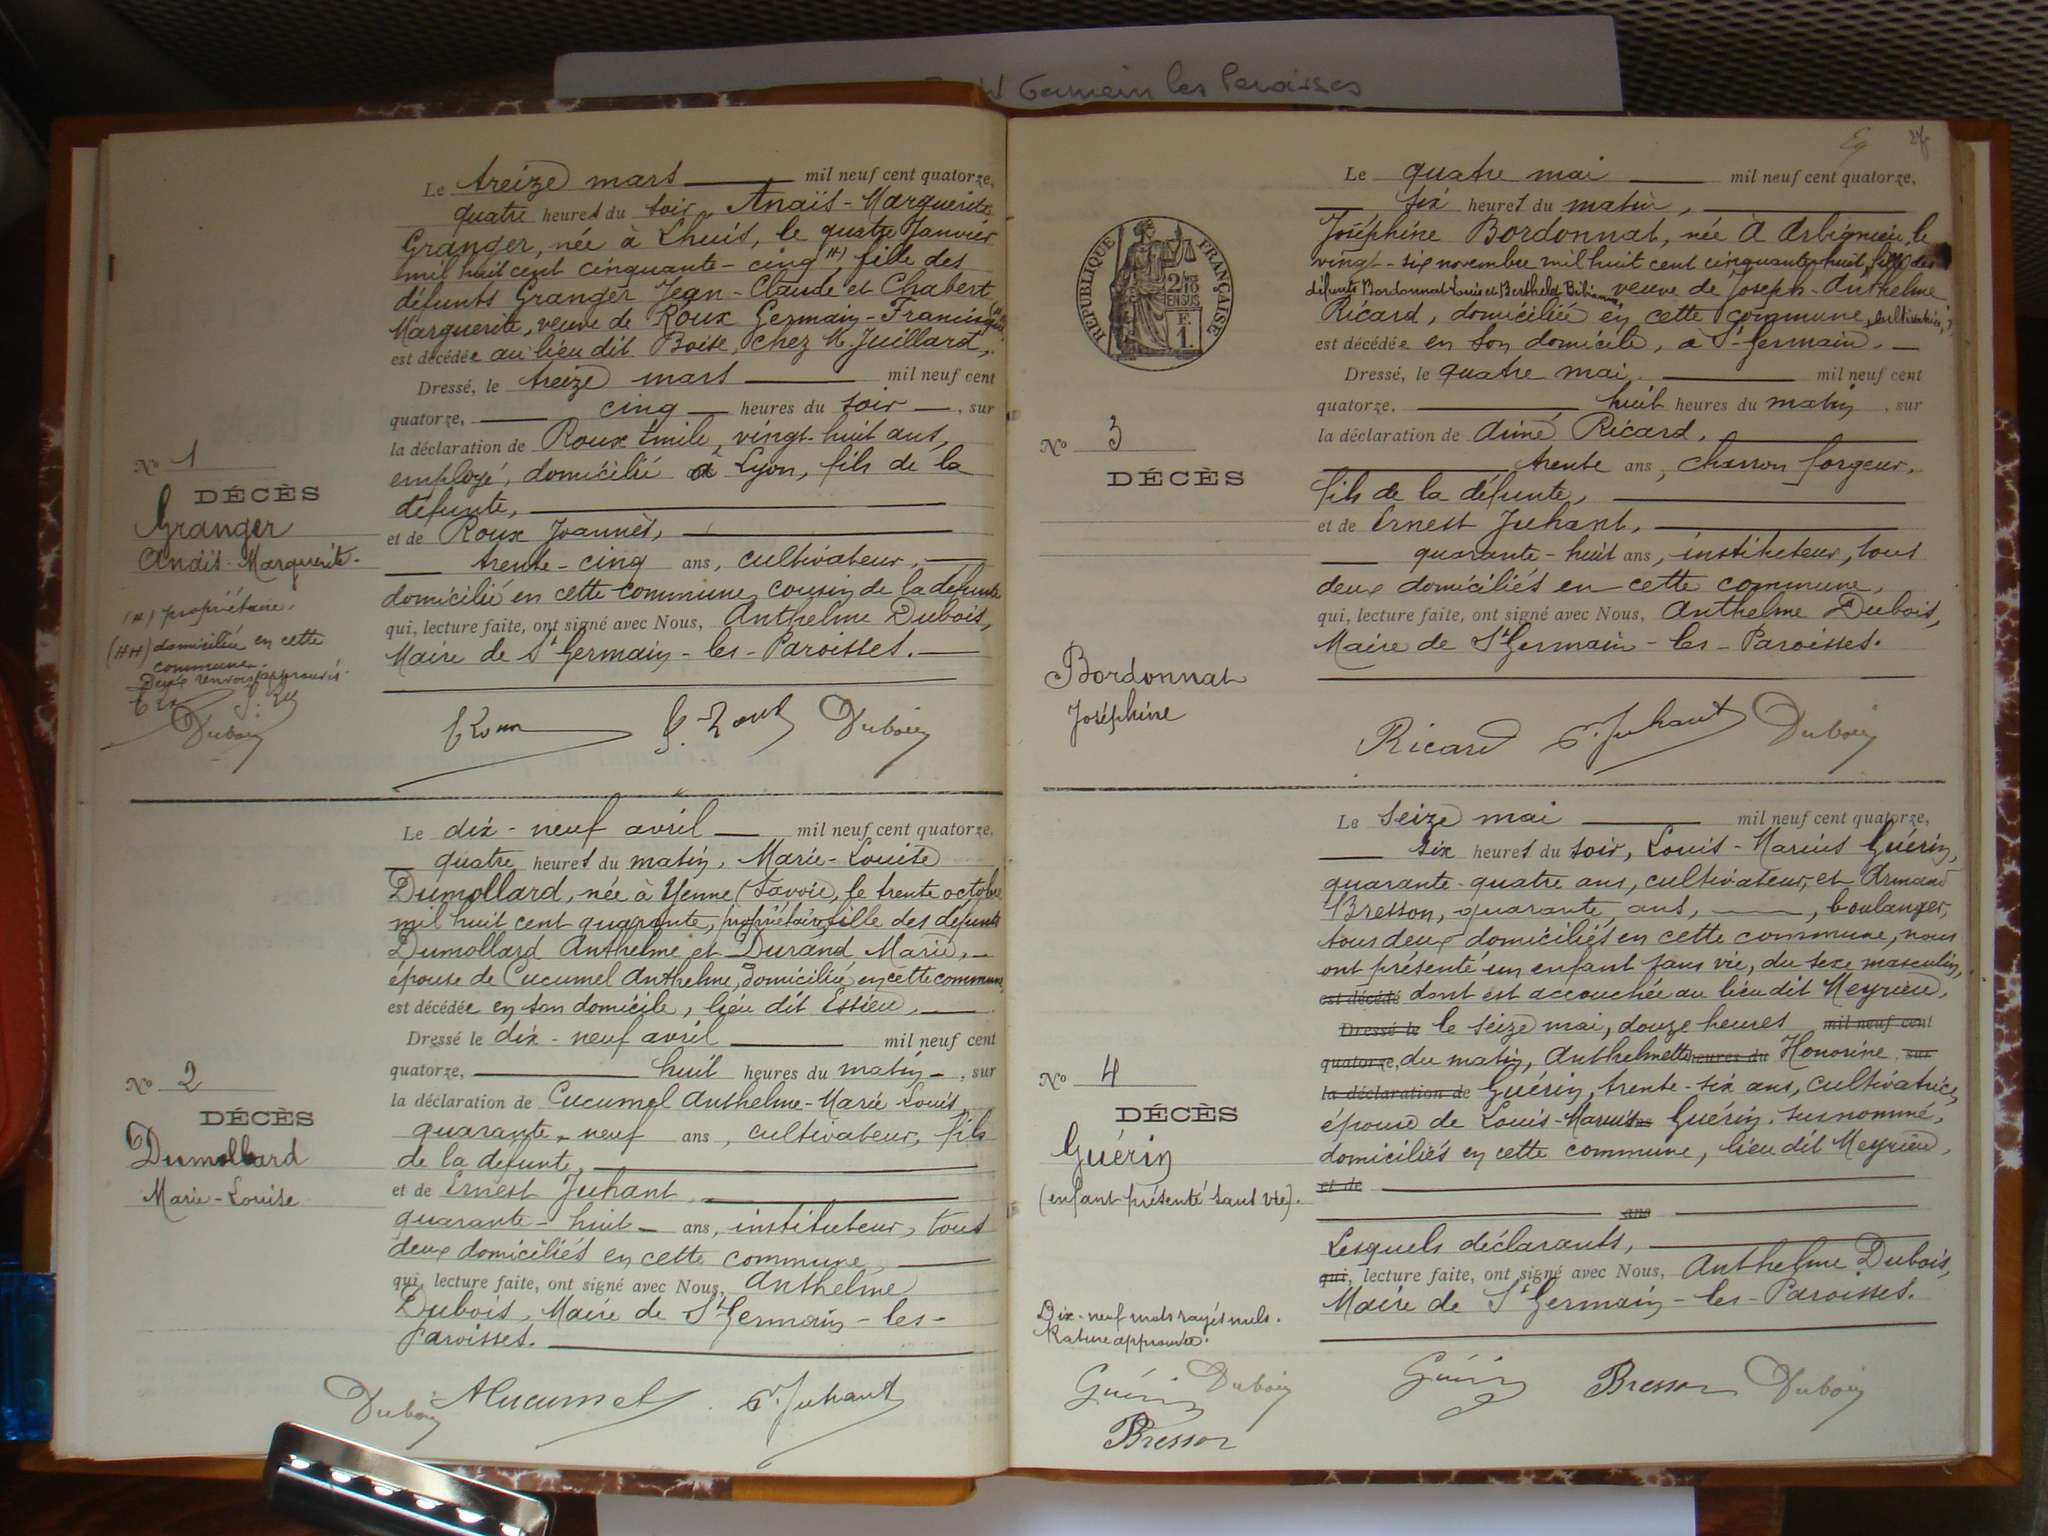 Germain les Paroisses
Le treize mars mil neuf cent quatorze,
quatre heures du soir, Anaïs-Marguerite
Granger, née à Lhuis, le quatre Janvier
mil huit cent cinquante-cinq (#) fille des
défunts Granger Jean-Claude et Chabert
Marguerite, veuve de Roux Germain-Francisque
est décédée au lieu dit Boise, chez M. Juillard,
Dressé, le treize mars mil neuf cent
quatorze, cinq heures du soir, sur
la déclaration de Roux Émile, vingt-huit ans,
employé, domicilié à Lyon, fils de la
défunte,
et de Roux Joannès,
trente-cinq ans, cultivateur,
domicilié en cette commune, cousin de la défunte
qui, lecture faite, ont signé avec Nous, Anthelme Dubois,
Maire de St Germain-les-Paroisses.
No 1
DÉCÈS
Granger
Anaïs-Marguerite.
(#) propriétaire.
(##) domiciliée en cette
commune.
Deux renvois approuvés.
Dubois
Dubois
Le dix-neuf avril mil neuf cent quatorze,
quatre heures du matin, Marie-Louise
Dumollard, née à Yenne (Savoie, le trente octobre
mil huit cent quarante, propriétaire, fille des défunts
Dumollard Anthelme et Durand Marie,
épouse de Cucumel Anthelme, domiciliée en cette commune,
est décédée en son domicile, lieu dit Essieu,
Dressé le dix-neuf avril mil neuf cent
quatorze, huit heures du matin, sur
la déclaration de Cucumel Anthelme-Marie-Louis,
quarante-neuf ans, cultivateur, fils
de la défunte,
et de Ernest Juhant
quarante-huit ans, instituteur, tous
deux domiciliés en cette commune,
qui, lecture faite, ont signé avec Nous, Anthelme
Dubois, Maire de St Germain-les-
Paroisses.
No 2
DÉCÈS
Dumollard
Marie-Louise
Dubois ACucumel E. Juhant
27
RÉPUBLIQUE FRANÇAISE
2/10
EN SUS
F.
1.
Le quatre mai mil neuf cent quatorze,
six heures du matin,
Joséphine Bordonnat, née à Arbignieu, le
vingt-six novembre mil huit cent cinquante-huit, fille des
défunts Bordonnat Louis et Berthelet Bibianne, veuve de Joseph-Anthelme
Ricard, domiciliée en cette commune, cultivatrice,
est décédée en son domicile, à St-Germain.
Dressé, le quatre mai mil neuf cent
quatorze, huit heures du matin, sur
la déclaration de Aimé Ricard,
trente ans, charron forgeur,
fils de la défunte,
et de Ernest Juhant,
quarante-huit ans, instituteur, tous
deux domiciliés en cette commune,
qui, lecture faite, ont signé avec Nous, Anthelme Dubois,
Maire de St Germain-les-Paroisses.
No 3
DÉCÈS
Bordonnat
Joséphine
Ricard E. Juhant Dubois
Le seize mai mil neuf cent quatorze,
six heures du soir, Louis-Marius Guérin,
quarante-quatre ans, cultivateur, et Armand
Bresson, quarante ans, boulanger,
tous deux domiciliés en cette commune, nous
ont présenté un enfant sans vie, du sexe masculin,
est décédé dont est accouchée au lieu dit Meyrieu,
Dressé le le seize mai, douze heures mil neuf cent
quatorze, du matin, Anthelmette heures du Honorine, sur
la déclaration de Guérin, trente-six ans, cultivatrice,
épouse de Louis-Marius Guérin, surnommé,
domiciliés en cette commune, lieu dit Meyrieu,
et de
ans
Lesquels déclarants,
qui, lecture faite, ont signé avec Nous, Anthelme Dubois,
Maire de St Germain-les-Paroisses.
No 4
DÉCÈS
Guérin
(enfant présenté sans vie).
Dix-neuf mots rayés nuls.
Rature approuvée.
Guérin Dubois
Bresson
Guérin Bresson Dubois